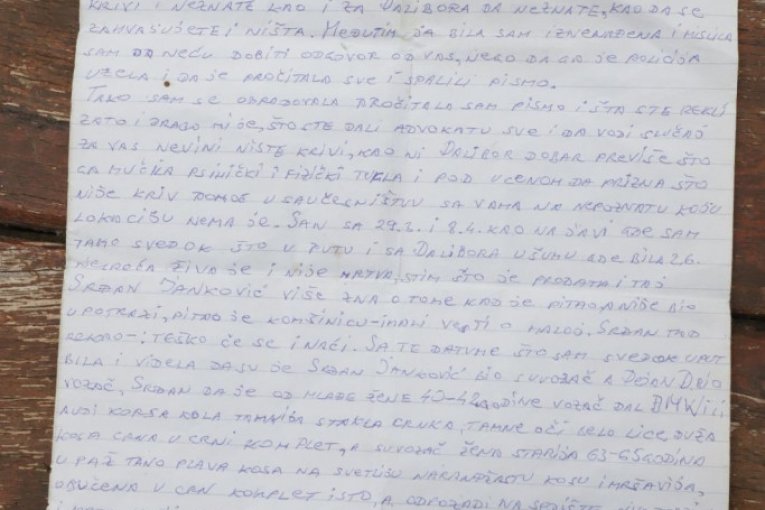 KRIVI I NEZNATE KAO I ZA DALIBORA DA NEZNATE, KAO DA SE
ZAHVAŠUJETE I NIŠTA. MEĐUTIM JA BILA SAM IZNENAĐENA I MISLILA
SAM DA NEĆU DOBITI ODGOVOR OD VAS, NEGO DA GA JE POLICIJA
UZELA I DA JE PROČITALA SVE I SPALILI PISMO.
TAKO SAM SE OBRADOVALA PROČITALA SAM PISMO I ŠTA STE REKLI
ZATO I DRAGO MI JE, ŠTO STE DALI ADVOKATU SVE I DA VODI SLUČAJ
ZA VAS NEVINI NISTE KRIVI, KAO NI DALIBOR DOBAR PREVIŠE ŠTO
GA MUČKA PSIHIČKI I FIZIČKI TUKLA I POD UCENOM DA PRIZNA ŠTO
NIJE KRIV U SAUČESNIŠTVU SA VAMA NA NEPOZNATU KOJU
LOKACIJU NEMA JE. SAN SA 29.2. I 8.4. KAO NA JAVI GDE SAM
TAMO SVEDOK ŠTO U PUTU I SA DALIBORA U ŠUMU GDE BILA 26.
ŽIVA JE I NIJE MRTVA, STIM ŠTO JE PRODATA I TAJ
SRĐAN JANKOVIĆ VIŠE ZNA O TOME KAO JE PITAO, A NIJE BIO
U POTRAZI, PITAO JE KOMŠINICU-IMALI VESTI O MALOJ. SRĐAN TAD
REKAO-: TEŠKO ĆE SE I NAĆI. SA TE DATUME ŠTO SAM SVEDOK U PUT
BILA I VIDELA DA JE SRĐAN JANKOVIĆ BIO SUVOZAČ A DEJAN D. BIO
VOZAČ, SRĐAN DA JE OD MLADE ŽENE 40-42 GODINE VOZAČ DAL BMW ILI
AUDI KORSA KOLA TAMNIJA STAKLA CRNKA, TAMNE OČI CELO LICE, DUŽA
KOSA CRNA U CRNI KOMPLET, A SUVOZAČ ŽENA STARIJA 63-65 GODINA
U PAŽ TANO PLAVA KOSA NA SVETLIJU NARANDŽASTU KOSU I MRŠAVIJA,
OBUČENA U CRN KOMPLET ISTO, A ODPOZADI NA SEDIŠTE